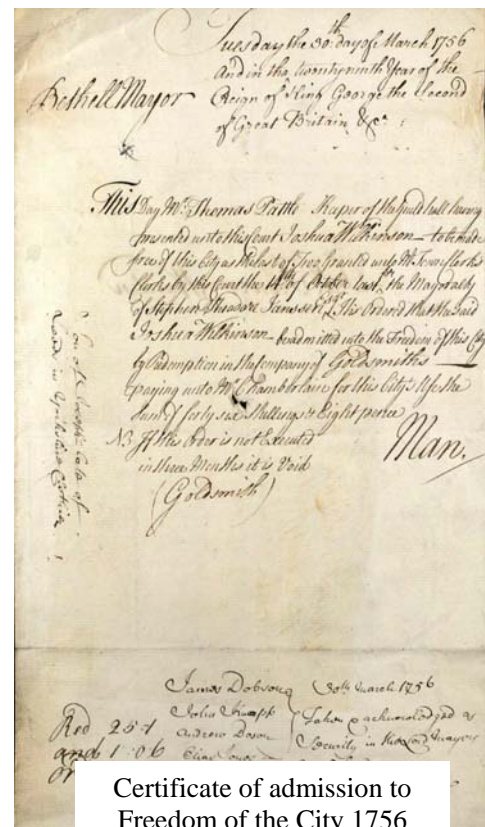 Tuesday the 30th day of March 1756
And in the twentyninth Year of the
Bethell Mayor
Reign of King George the Second
of Great Britain &c.
This Day Mr. Thomas Pattle Keeper of the Guildhall having
presented unto this Court Joshua Wilkinson to be made
free of this City as the last of Two Granted unto Mr. Town Clerks
Clerks by this Court the of October last the Mayoralty
of Stephen Theodore Janssen Esqr. It is Ordered that the said
Joshua Wilkinson be admitted into the Freedom of this City
by Redemption in the Company of Goldsmiths
paying unto Mr. Chamberlain for this City's Use the
Sum of forty six Shillings & Eight pence
NB If this Order is not Executed
in three Months it is Void
(Goldsmith)
Man.
Son of Joseph late of
Leeds in Yorkshire
James Dobson
John
Andrew
Elias
30th March 1756
Taken & acknowledged as
Security in the Lord Mayors
Red 25
Certificate of admission to
Freedom of the City 1756